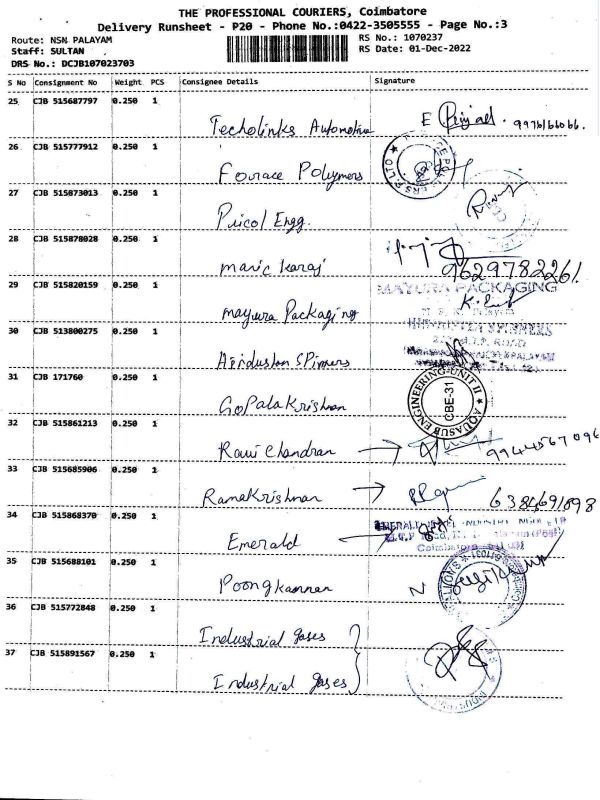 THE PROFESSIONAL COURIERS, Coimbatore
Delivery Runsheet - P20 - Phone No.:0422-3505555 - Page No.:3
Route: NSN PALAYAM
RS No.: 1070237
Staff: SULTAN
RS Date: 01-Dec-2022
DRS No.: DCJB107023703
S No Consignment No Weight PCS Consignee Details Signature
25 CJB 515687797 0.250 1
Techolinks Automotive
26 CJB 515777912 0.250 1
Fourace Polymers
27 CJB 515873013 0.250 1
Pricol Engg.
28 CJB 515878028 0.250 1
9629782261.
29 CJB 515820159 0.250 1
Mayura Packaging
MAYURA PACKAGING
30 CJB 513800275 0.250 1
Hindustan Spinners
31 CJB 171760 0.250 1
GoPalaKrishnan
AQUASUB ENGINEERING-UNIT II
CBE-31
32 CJB 515861213 0.250 1
Ravi Chandran
9944567096
33 CJB 515685906 0.250 1
RamaKrishnan
6384691898
34 CJB 515868370 0.250 1
Emerald
35 CJB 515688101 0.250 1
Poongkannan
36 CJB 515772848 0.250 1
Industrial gases
37 CJB 515891567 0.250 1
Industrial gases